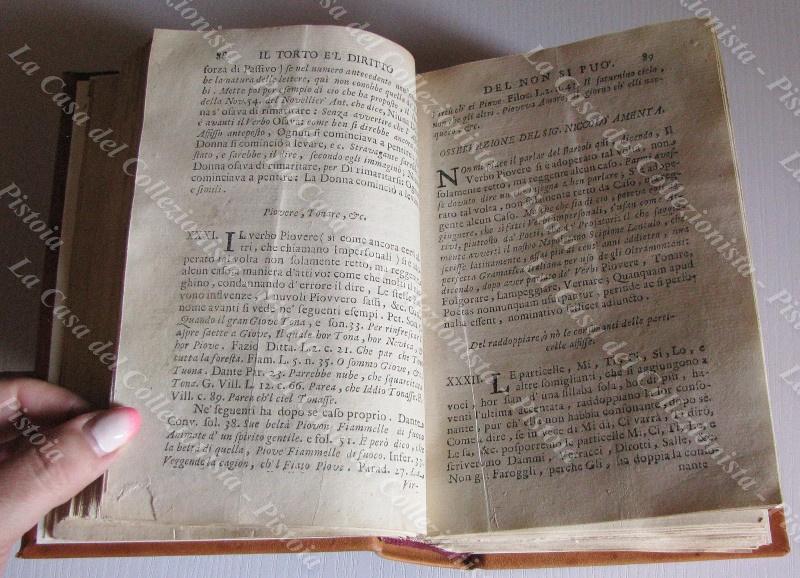 88 IL TORTO E'L DIRITTO
forza di Passivo) se nel numero antecedente
be la natura delle lettere, qui non conobbe quella
bi. Mette poi per esempio di ciò che ha proposto, il
della Nov. 54. del Novellier' Ant. che dice, Niuna
na s'osava di rimaritare: Senza avvertire che
s'avanti il Verbo Osava: come ben si direbbe ancora
Affisso anteposto, Ognun si cominciava a pentere:
Donna si cominciò a levare, e c. Stravagante sarebbe
stato, e sarebbe, il dire, secondo egli immaginò; Ne
Donna osava di rimaritare, per Di rimaritarsi:
cominciava a pentere: La Donna cominciò a
e simili.
Piovere, Tonare, &c.
XXXI. IL verbo Piovere (sì come ancora certi al-
tri, che chiamano Impersonali) si è
perato tal volta non solamente retto, ma regger
alcun caso; a maniera d'attivo: e come che molti
ghino, condannando d'errore il dire, Le stelle
vono influenze, I nuvoli Piovvero sassi, &c.
nome avanti si vede ne' seguenti esempi. Pet. Son.
Quando il gran Giove Tona, e son. 33. Per rinfrescar
aspre saette a Giove, Il quale hor Tona, hor Nevica,
hor Piove. Fazio Ditta. L. 2. c. 21. Che par che
tutta la foresta. Fiam. L. 5. n. 35. O sommo Giove,
Tuona. Dante Par. 23. Parrebbe nube, che squarciata
Tona. G. Vill. L. 12. c. 66. Parea, che Iddio Tonasse.
Vill. c. 89. Paren ch'l ciel Tonasse.
Ne' seguenti ha dopo se caso proprio. Dante
Conv. fol. 38. Sue beltà Piovon Fiammelle di fuoco
Animate d'un spirito gentile. e fol. 51. E però dico, che
la beltà di quella, Piove Fiammelle di fuoco. Infer. 33.
Veggendo la cagion, ch'l Fiato Piove. Parad. 27. La
Vir-
DEL NON SI PUO'. 89
Virtù ch'ei Piove. Filoc. L. 2. Il saturnino cielo,
non che gli altri. Pioveva Amore, il giorno ch'elli nac-
quero, &c.
OSSERVAZIONE DEL SIG. NICCOLÒ AMENTA.
Non mi piace il parlar del Bartoli qui, dicendo, Il
Verbo Piovere si è adoperato tal volta, non
solamente retto, ma reggente alcun caso. Parmi avef-
se dovuto dire,
rato tal volta, non solamente retto da Caso,
gente alcun Caso. Ma che che sia di ciò,
giugnere, che sì fatti Verbi Impersonali, s'usan
tivi, piuttosto da' Poeti, che da' Prosatori, il che
mente avvertì il nostro Napolitano Scipione Lentulo, che
scrisse latinamente, più di cent'anni addietro, una
perfetta Gramatica Italiana per uso degli Oltramontani:
dicendo, dopo aver parlato de' Verbi Piovere, Tonare,
Folgorare, Lampeggiare, Vernare; Quanquam apud
Poetas nonnunquam ita ponuntur, perinde ac si perso-
nalia essent, nominativo scilicet adjuncto.
Del raddoppiare, ò nò le consonanti delle parti-
celle affisse.
XXXII. LE particelle, Mi, Ti, Ci, Si, Lo, e
altre somiglianti, che si aggiungono a
voci, hor sian d'una sillaba sola, hor di più, ha-
venti l'ultima accentata, raddoppiano la lor conso-
nante, pur ch'elle non l'habbia consonante, dopo se.
Come dire, se in vece di Mi dà, Ci varrà, Ti dirò,
Le fa, &c. posporremo le particelle Mi, Ci, Ti, Le, e
scriveremo Dammi, Verracci, Dirotti, Salle,
Non già Faroggli, perche Gli, ha doppia la conso-
nante
La Casa del Collezionista - Pistoia